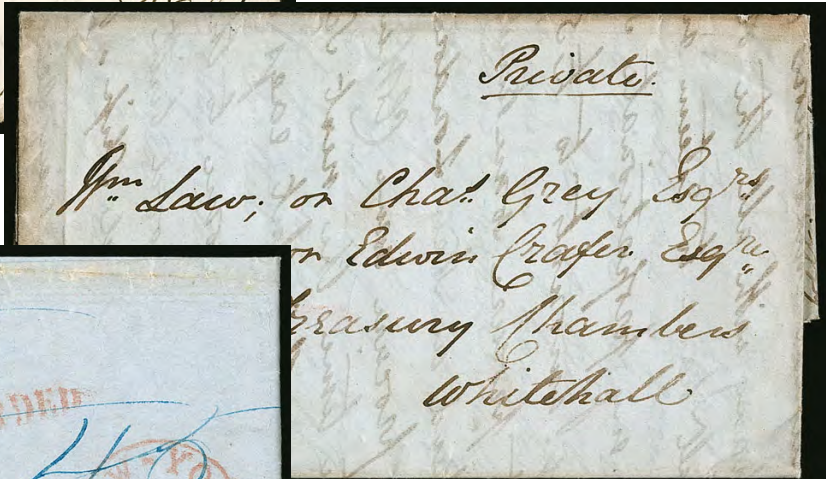 Private.
Wm Law; or Chas. Grey Esqrs
or Edwin Crafer Esqre
Treasury Chambers
Whitehall
45